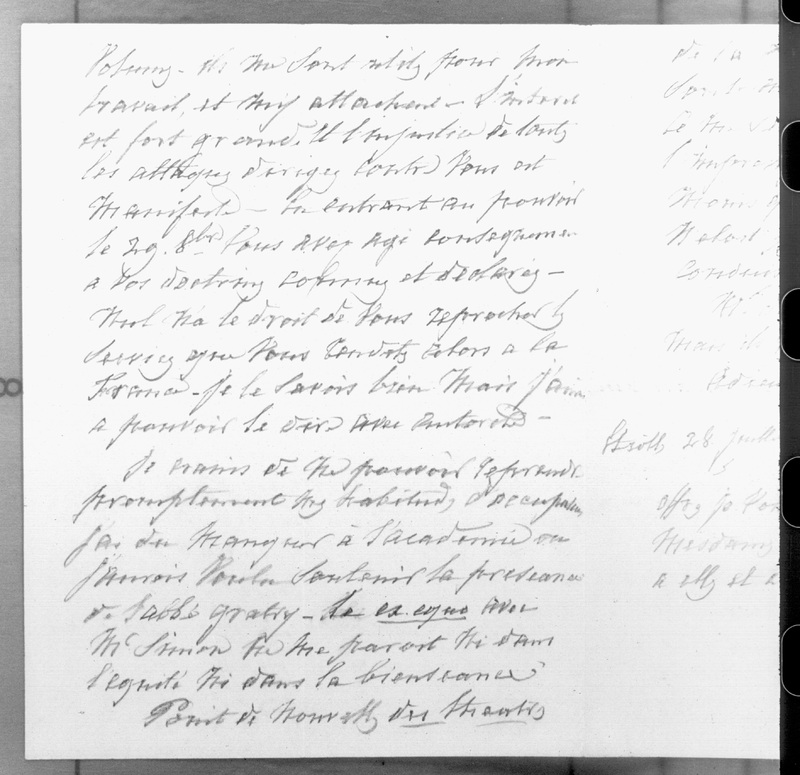 Volumes - ils me sont utiles pour mon
travail, et m'y attachent - L'interet
est fort grand. Et l'injustice de toutes
les attaques dirigees contre Vous est
manifeste - En entrant au pouvoir
le 29. 8bre Vous avez agi consequemen
a Vos doctrines connues et declarées -
nul n'a le droit de Vous reprocher les
services que Vous rendites alors a la
France - je le savois bien mais j'aime
a pouvoir le dire avec autorité -
je crains de ne pouvoir reprendre
promptement mes habitudes d'occupation
j'ai du manquer à l'academie ou
j'aurois Voulu soutenir la preseance
de l'abbé gratry - le ex equo avec
Mr Simon ne me paroit ni dans
l'equité ni dans la bienseance
Point de nouvelles des theatres
de la
l'impress
conduit
Adieu
28 juill
offrez je Vous
Mesdames
a elles et a